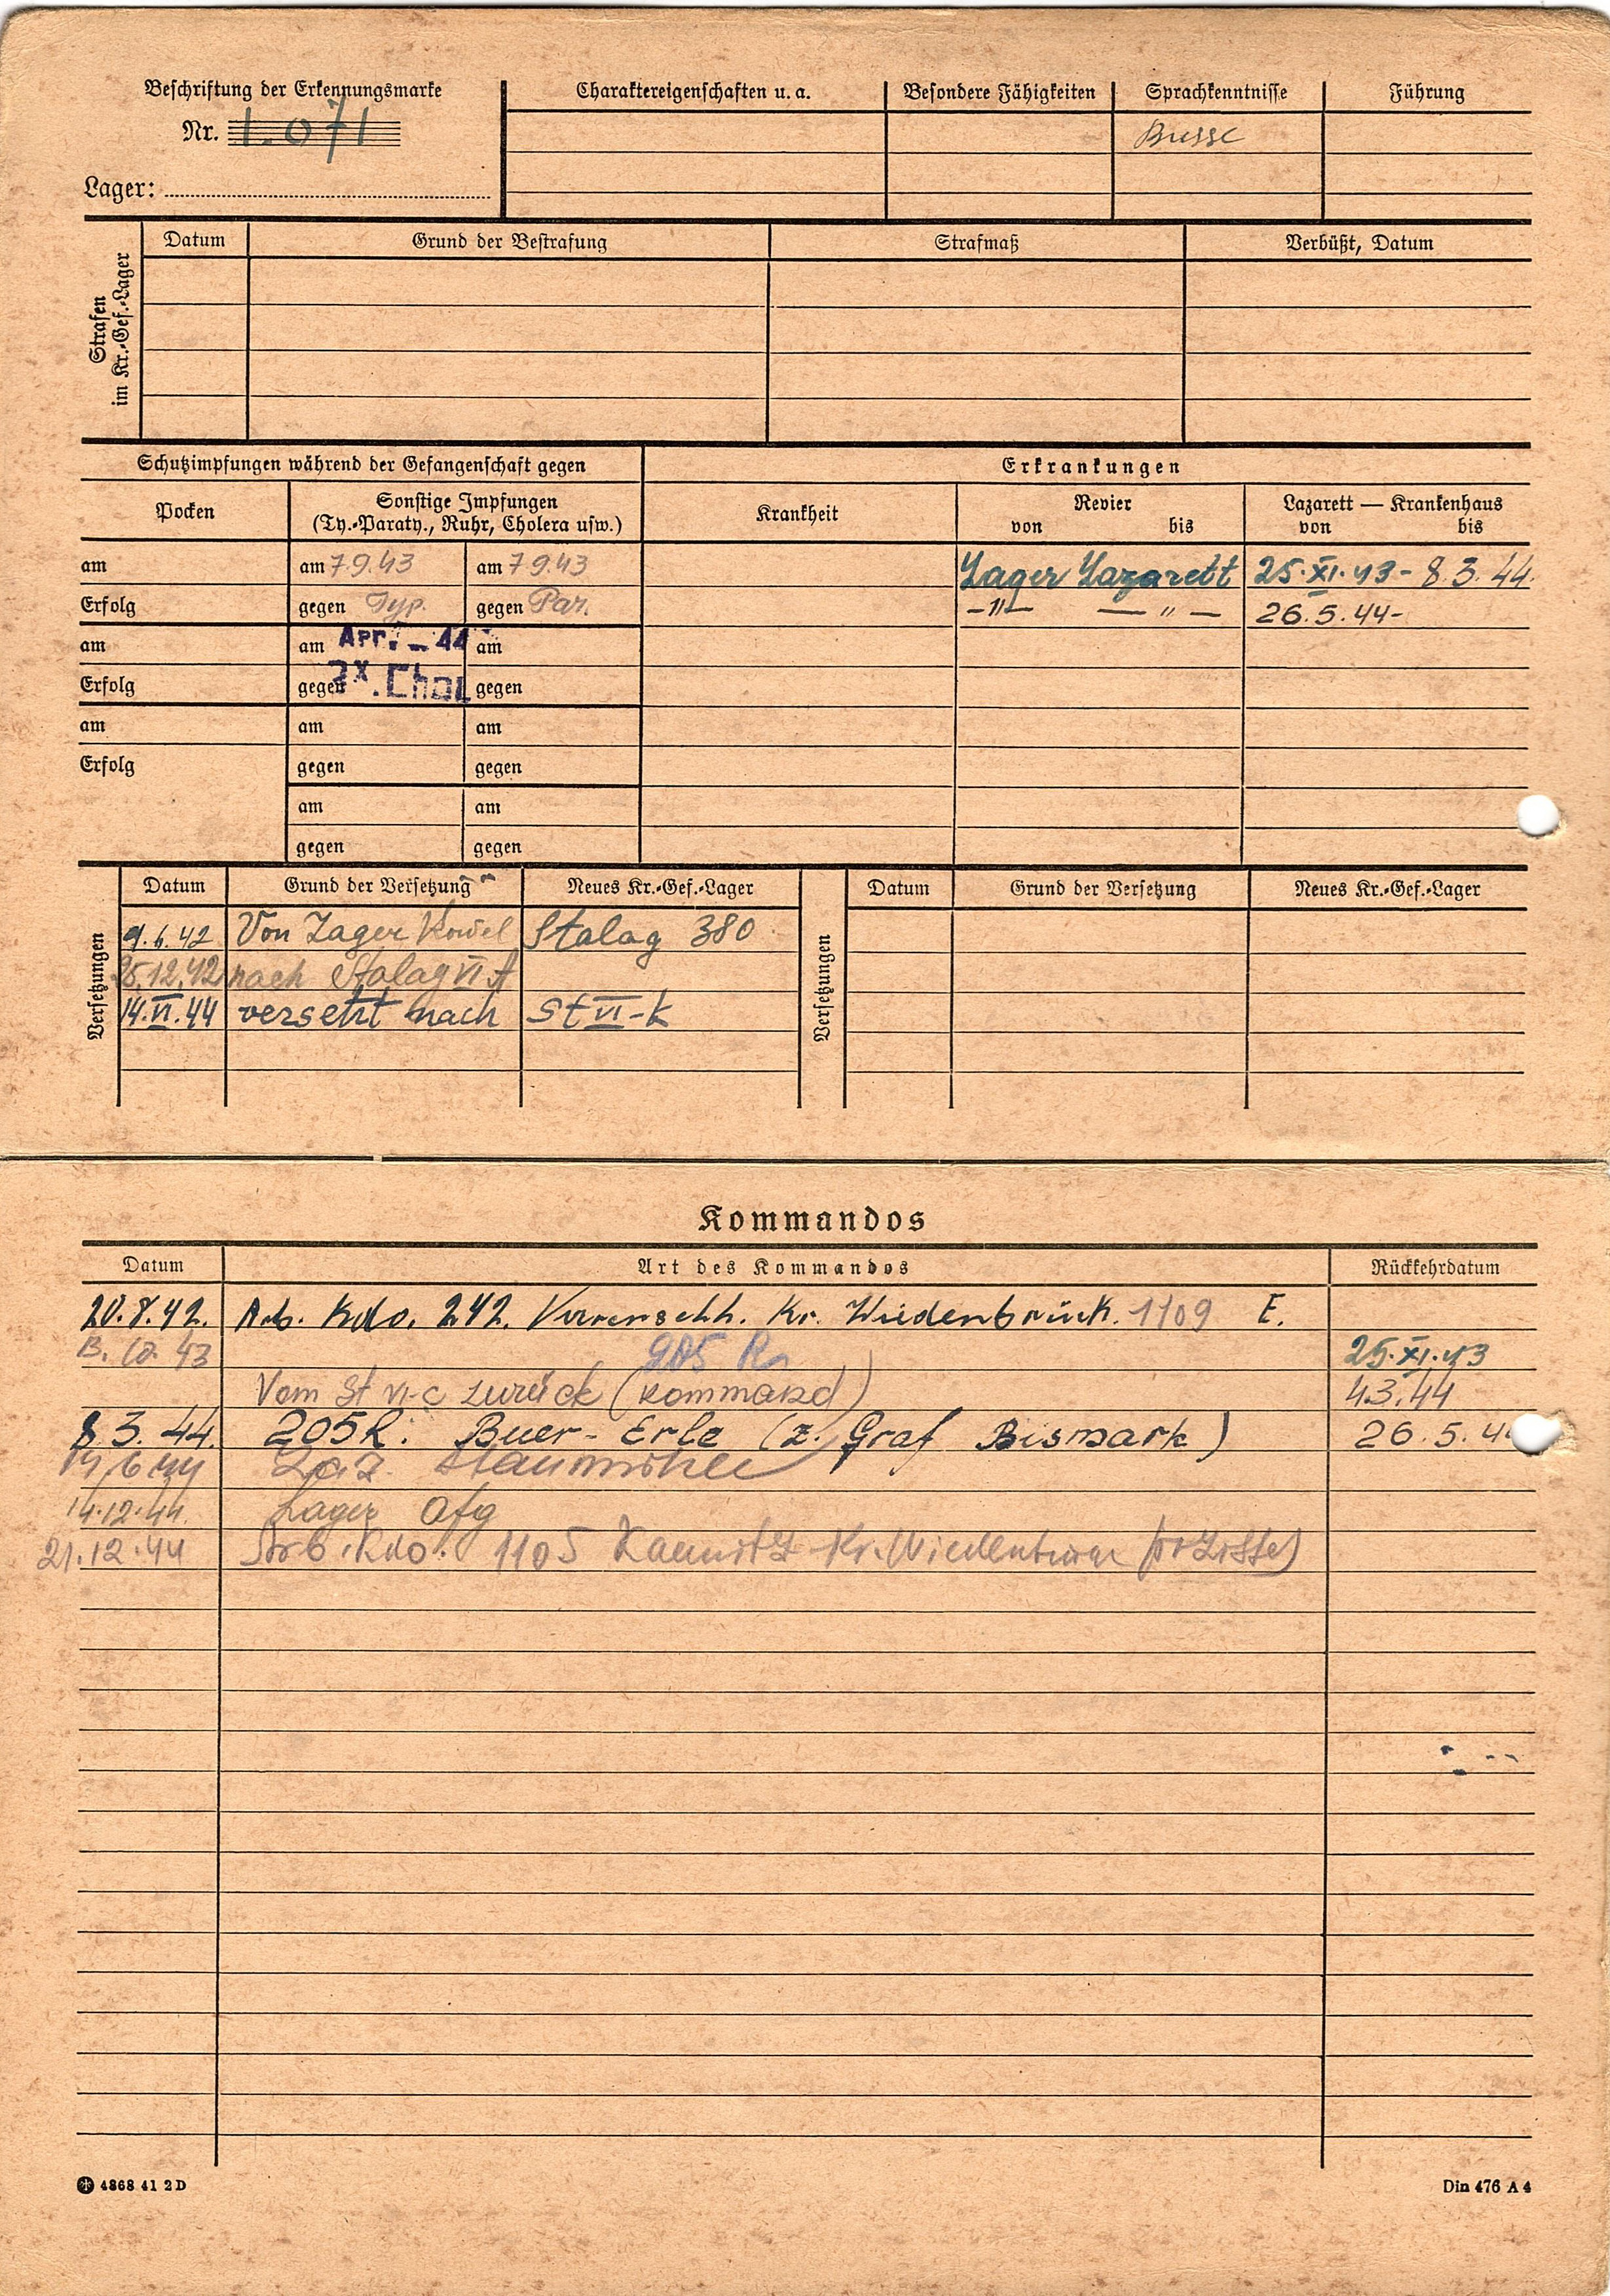 Beschriftung der Erkennungsmarke
Nr. 1.071
Lager:
Charaktereigenschaften u. a.
Besondere Fähigkeiten
Sprachkenntnisse
Führung
Russe
Strafen
im Kr.-Gef.-Lager
Datum
Grund der Bestrafung
Strafmaß
Verbüßt, Datum
Schutzimpfungen während der Gefangenschaft gegen
Erkrankungen
Pocken
Sonstige Impfungen
(Ty.-Paraty., Ruhr, Cholera usw.)
Krankheit
Revier
von bis
Lazarett — Krankenhaus
von bis
am am 7.9.43 am 7 9.43 Lager Lazarett 25.XI.43 - 8.3.44.
Erfolg gegen Typ. gegen Par. -"- — " — 26.5.44-
am am Apr. - 44 am
Erfolg gegen 2x. Chol gegen
am am am
Erfolg gegen gegen
am am
gegen gegen
Versetzungen
Datum Grund der Versetzung Neues Kr.-Gef.-Lager
9.6.42 Von Lager Kowel Stalag 380
25.12.42 nach Stalag VI A
14.VI.44 versetzt nach St VI-K
Versetzungen
Datum Grund der Versetzung Neues Kr.-Gef.-Lager
Kommandos
Datum Art des Kommandos Rückkehrdatum
20.8.42. Arb. Kdo. 242. Kr. Wiedenbrück. 1109 E.
43 205 R 25.XI.43
Vom St VI-C zurück (Kommand) 4.3.44
8 3. 44. 205R: Buer - Erle (z. Graf Bismark) 26.5.4
14,6 44 Laz. Staumühle
14.12.44. Lager
21.12.44 Arb. Kdo. 1105 Kr.
4368 41 2 D
Din 476 A 4